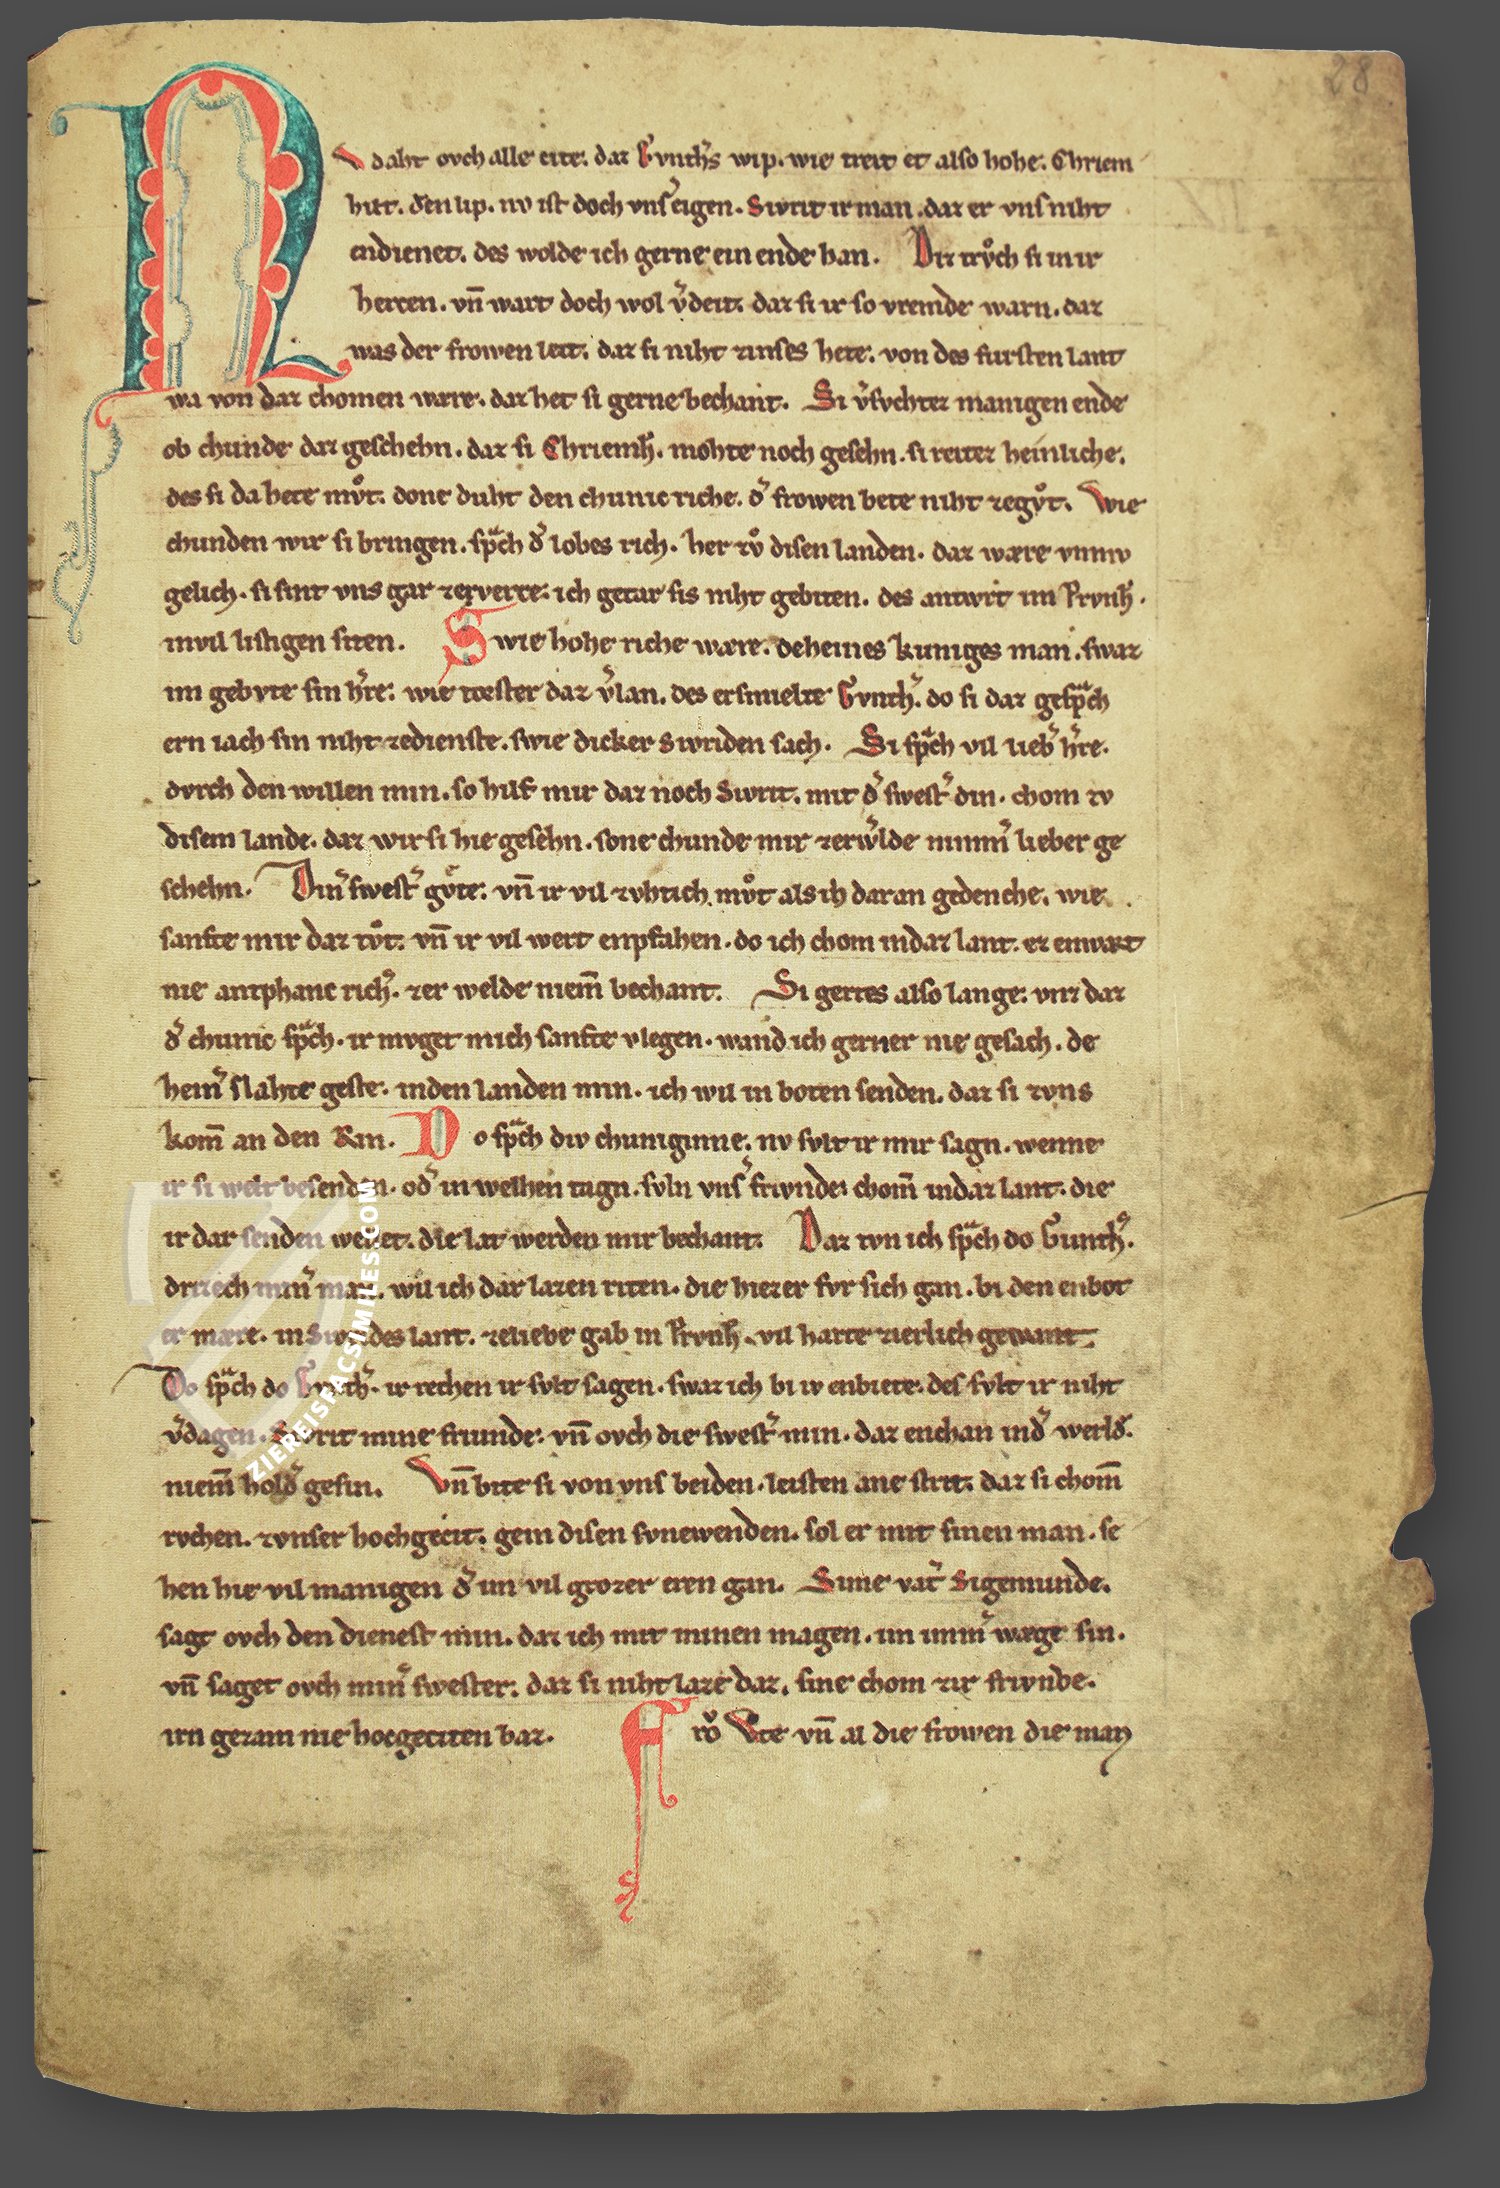 28
NV daht ovch alle cite. daz Gvnthers wip. wie treit et also hohe. Chriem
hilt. den lip. nv ist doch vnser eigen. Sivrit ir man. daz er vns niht
endienet. des wolde ich gerne ein ende han. Ditz trůch si in ir
hercen. vn̄ wart doch wol v̓deit. daz si ir so vremde warn. daz
was der frowen leit. daz si niht zinses hete. von des fursten lant
wa von daz chomen wære. daz het si gerne bechant. Si v̓svchtez manigen ende
ob chunde daz geschehn. daz si Chriemh̓. mohte noch gesehn. si reitez heinliche.
des si da hete mv̊t. done duht den chunic riche. d̓ frowen bete niht zegv̊t. Wie
chunden wir si bringen. sp̾ch d̓ lobes rich. her zv̊ disen landen. daz wære vnmv
gelich. si sint vns gar zeverre. ich getar sis niht gebiten. des antwrt im Prvnh̓.
in vil listigen siten. Swie hohe riche wære. deheines kuniges man. swaz
im gebvte sin h̓re. wie toester daz v̓lan. des ersmielte Gvnth̓. do si daz gesp̾ch
ern iach sin niht zedienste. swie dicker Sivriden sach. Si sp̾ch vil lieb̓ h̓re.
dvrch den willen min. so hilf mir daz noch Sivrit. mit d̓ swest̓ din. chom zv
disem lande. daz wir si hie gesehn. sone chunde mir zerw̓lde nimm̓ lieber ge
schehn. Din̓ swest̓ gv̊te. vn̄ ir vil zvhtich mv̊t als ih daran gedenche. wie
sanfte mir daz tv̊t. vn̄ ir vil wert enpfahen. do ich chom in daz lant. ez enwart
nie antphanc rich̓. zer welde niem̄ bechant. Si gertes also lange. vntz daz
d̓ chunic sp̾ch. ir mvget mich sanfte vlegen. wand ich gerner nie gesach. de
hein̓ slahte geste. in den landen min. ich wil in boten senden. daz si zvns
kom̄ an den Rin. Do sp̾ch div chuniginne. nv svlt ir mir sagn. wenne
ir si welt besenden. od̓ in welhen tagn. svln vns̓ frivnde chom̄ in daz lant. die
ir dar senden wellet. die lat werden mir bechant. Daz tvn ich sp̾ch do Gunth̓.
drizech min̓ man. wil ich dar lazen riten. die hiezer fvr sich gan. bi den enbot
er mære. in Sivrides lant. zeliebe gab in Prvnh̓. vil harte zierlich gewant.
Do sp̾ch do Gvnth̓. ir rechen ir svlt sagen. swaz ich bi iv enbiete. des svlt ir niht
v̓dagen. Sivrit mine friunde. vn̄ ovch die swest̓ min. daz enchan in d̓ werld̓.
niem̄ hold̓ gesin. Vn̄ bite si von vns beiden. leisten ane strit. daz si chom̄
rvchen. zvnser hochgecit. gein disen svnewenden. sol er mit sinen man. se
hen hie vil manigen d̓ im vil grozer eren gan. Sime vat̓ Sigemunde.
sagt ovch den dienest min. daz ich mit minen magen. im imm̓ wæge sin.
vn̄ saget ovch min̓ swester. daz si niht laze daz. sine chom zir frivnde.
irn gezam nie hocgeciten baz. Frŏ Vte vn̄ al die frowen die man
ZIEREISFACSIMILES.COM